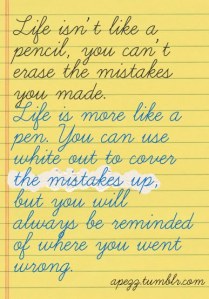 Life isn't like a
pencil, you can't
erase the mistakes
you made.
Life is more like a
pen. You can use
white out to cover
the mistakes up,
but you will
always be reminded
of where you went
wrong.
apezz.tumblr.com